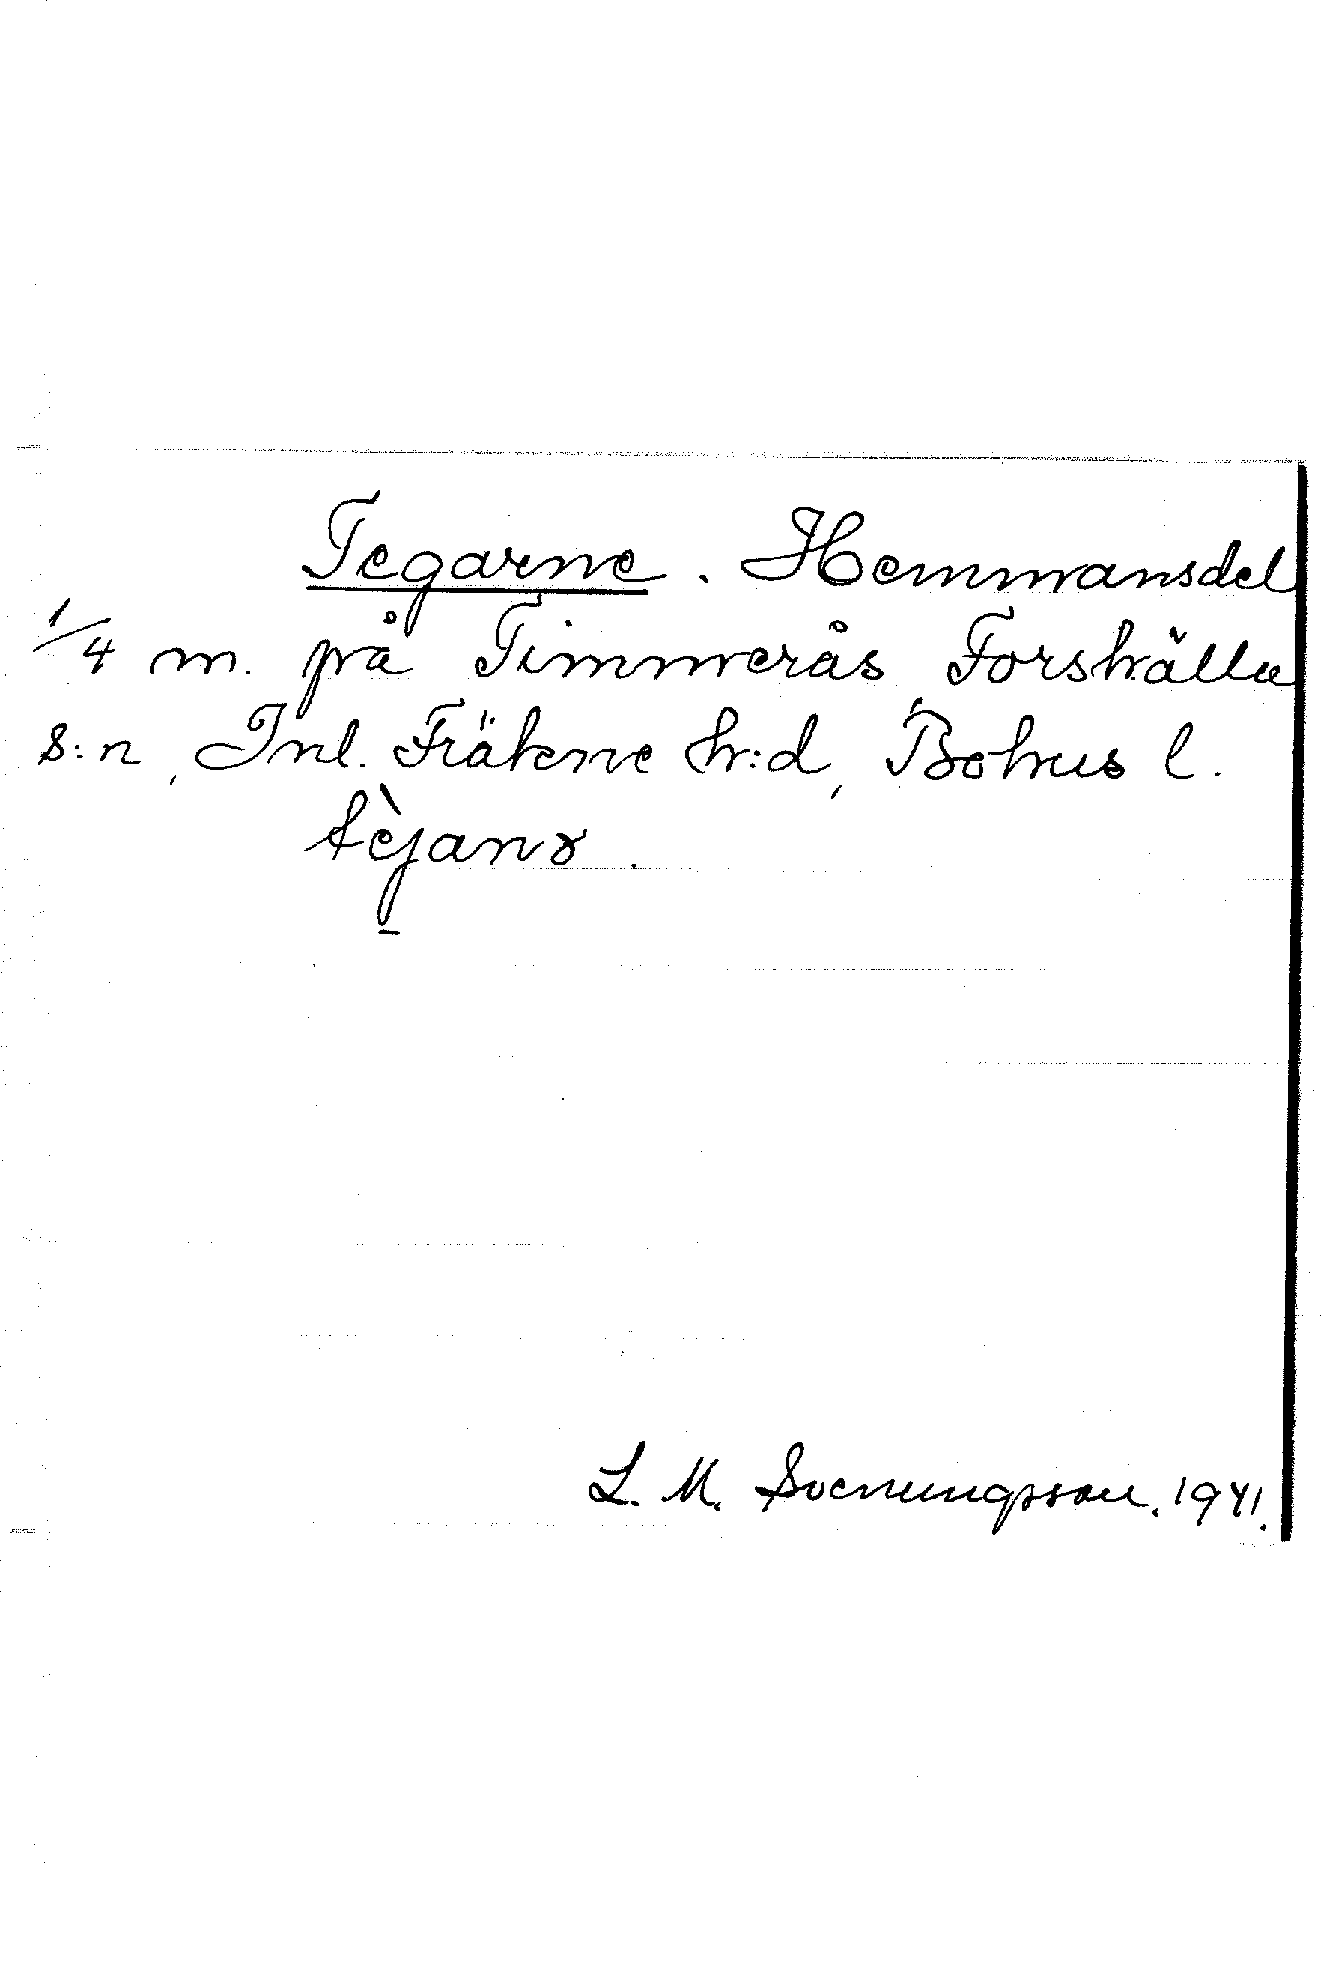 Tegarne. Hemmansdel
1/4 m. på Timmerås, Forshälla
s:n, Inl. Fräkne h:d, Bohus l.
L. M. Svenungsson. 1941.